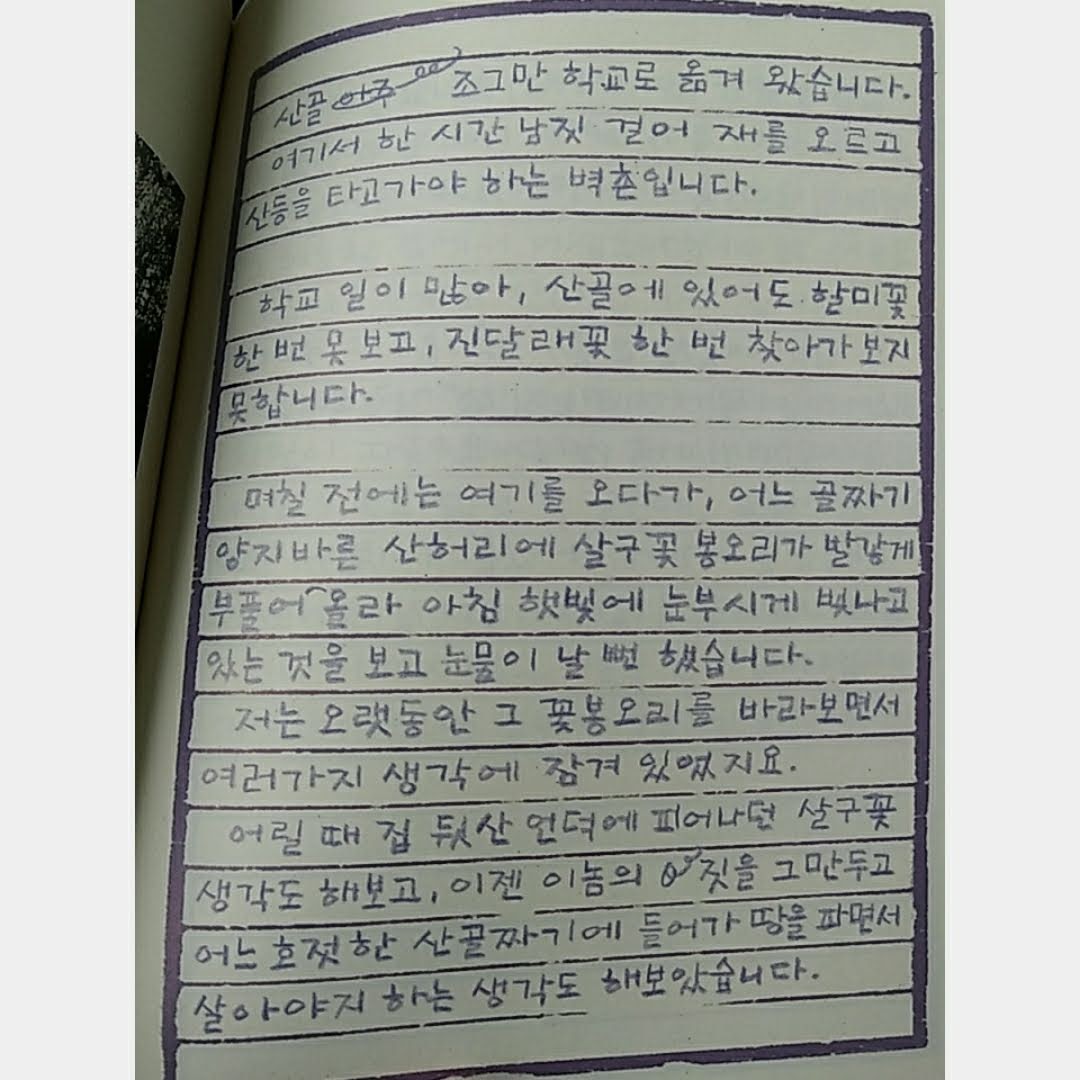 산골 아주 조그만 학교로 옮겨 왔습니다.
여기서 한 시간 남짓 걸어 재를 오르고
산등을 타고가야 하는 벽촌입니다.
학교 일이 많아, 산골에 있어도 할미꽃
한 번 못 보고, 진달래꽃 한 번 찾아가 보지
못합니다.
며칠 전에는 여기를 오다가, 어느 골짜기
양지바른 산허리에 살구꽃 봉오리가 발갛게
부풀어 올라 아침 햇빛에 눈부시게 빛나고
있는 것을 보고 눈물이 날 뻔 했습니다.
저는 오랫동안 그 꽃봉오리를 바라보면서
여러가지 생각에 잠겨 있었지요.
어릴 때 집 뒷산 언덕에 피어나던 살구꽃
생각도 해보고, 이젠 이놈의 짓을 그만두고
어느 호젓한 산골짜기에 들어가 땅을 파면서
살아야지 하는 생각도 해보았습니다.